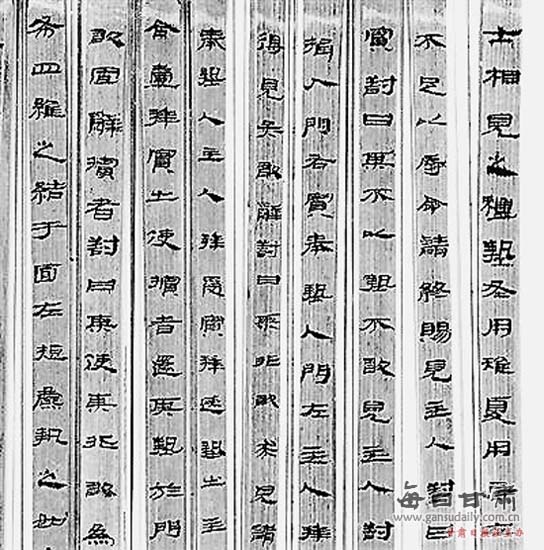 士相見之禮摯冬用雉夏用
不足以辱命請終賜見主人對曰
賓對曰某不以摯不敢見主人對
揖入門右賓奉摯入門左主人拜
得見矣敢辭對曰某非敢求見請
奉摯入主人拜受賓拜送摯出主
舍壹拜賓出使擯者還其摯於門
敢固辭擯者對曰某使某非敢為
布四維之結于面左短麛執之如
每日甘肃
www.gansudaily.com.cn
甘肃日报社主办